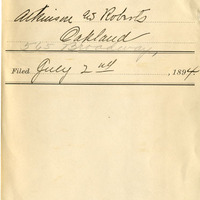 Atkinson vs Roberts
Oakland
565 Broadway,
Filed July 2nd, 1894